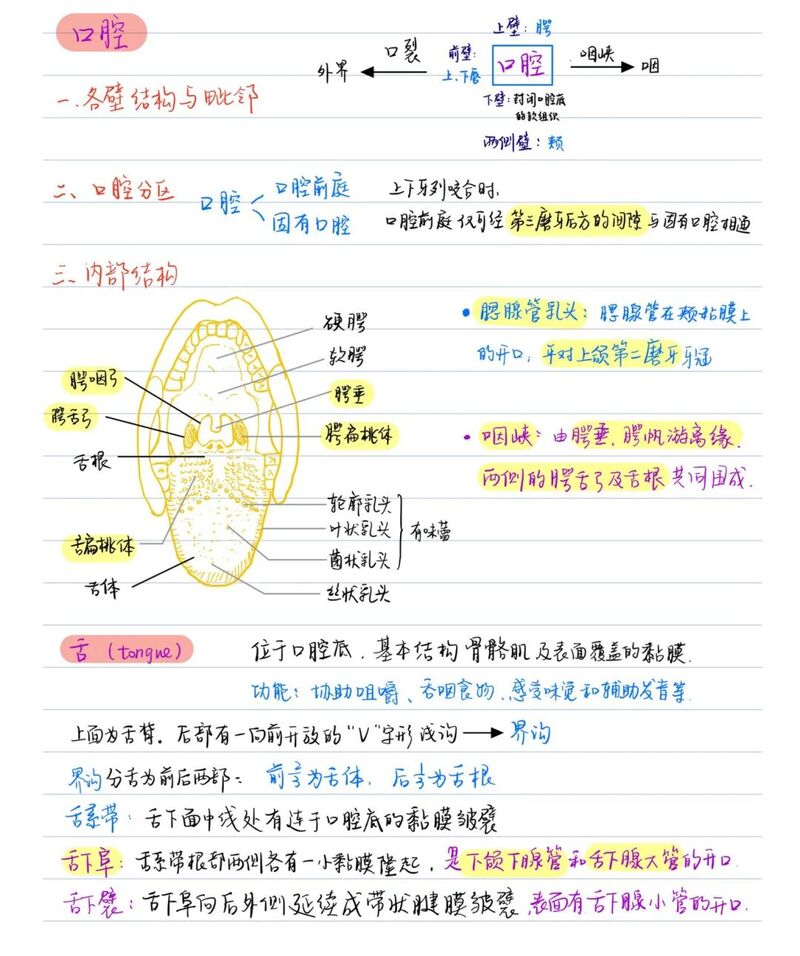 口腔
上壁：腭
口裂
前壁：
上、下唇
口腔
咽峡
外界
咽
下壁：封闭口腔底
的软组织
两侧壁：颊
一、各壁结构与毗邻
二、口腔分区
口腔
口腔前庭
固有口腔
上下牙列咬合时，
口腔前庭仅可经第三磨牙后方的间隙与固有口腔相通
三、内部结构
硬腭
软腭
腭咽弓
腭垂
腭舌弓
腭扁桃体
舌根
轮廓乳头
叶状乳头
有味蕾
舌扁桃体
菌状乳头
舌体
丝状乳头
• 腮腺管乳头：腮腺管在颊粘膜上
的开口，平对上颌第二磨牙牙冠
• 咽峡：由腭垂、腭帆游离缘、
两侧的腭舌弓及舌根共同围成.
舌（tongue）
位于口腔底．基本结构骨骼肌及表面覆盖的黏膜.
功能：协助咀嚼、吞咽食物、感受味觉和辅助发音等.
上面为舌背．后部有一向前开放的“V”字形浅沟→界沟
界沟分舌为前后两部：前⅔为舌体，后⅓为舌根
舌系带：舌下面中线处有连于口腔底的黏膜皱襞
舌下阜：舌系带根部两侧各有一小黏膜隆起，是下颌下腺管和舌下腺大管的开口.
舌下襞：舌下阜向后外侧延续成带状腱膜皱襞，表面有舌下腺小管的开口.